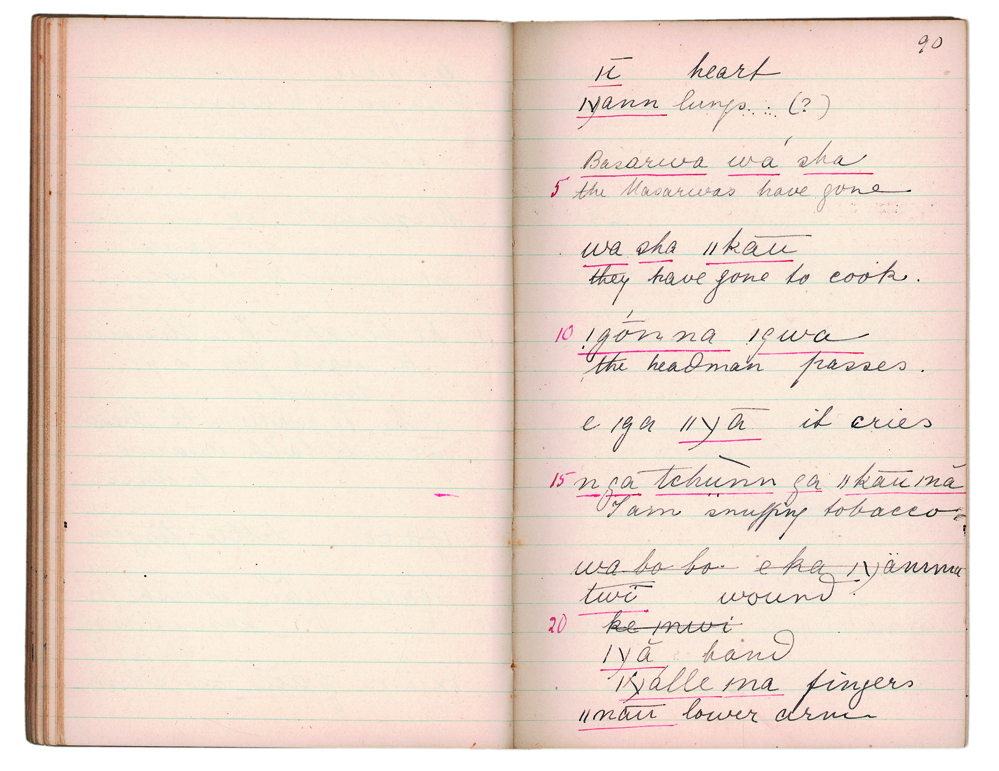 90
ıı̄ heart
ı)(ann lungs... (?)
Basarwa wá sha
5 the Masarwas have gone
wa sha ǁkāū
they have gone to cook.
10 !gónna ǀgwa
the headman passes.
e ǀga ǁ)(ā it cries
15 n ga tchùnn ga ǁkāū mā
I am snuffing tobacco
wa bo bo e ka ǀ)(ämma
twī wound
20 ke ınwi
ǀ)(ā hand
ǀ)(álle ma fingers
ǁnāū lower arm